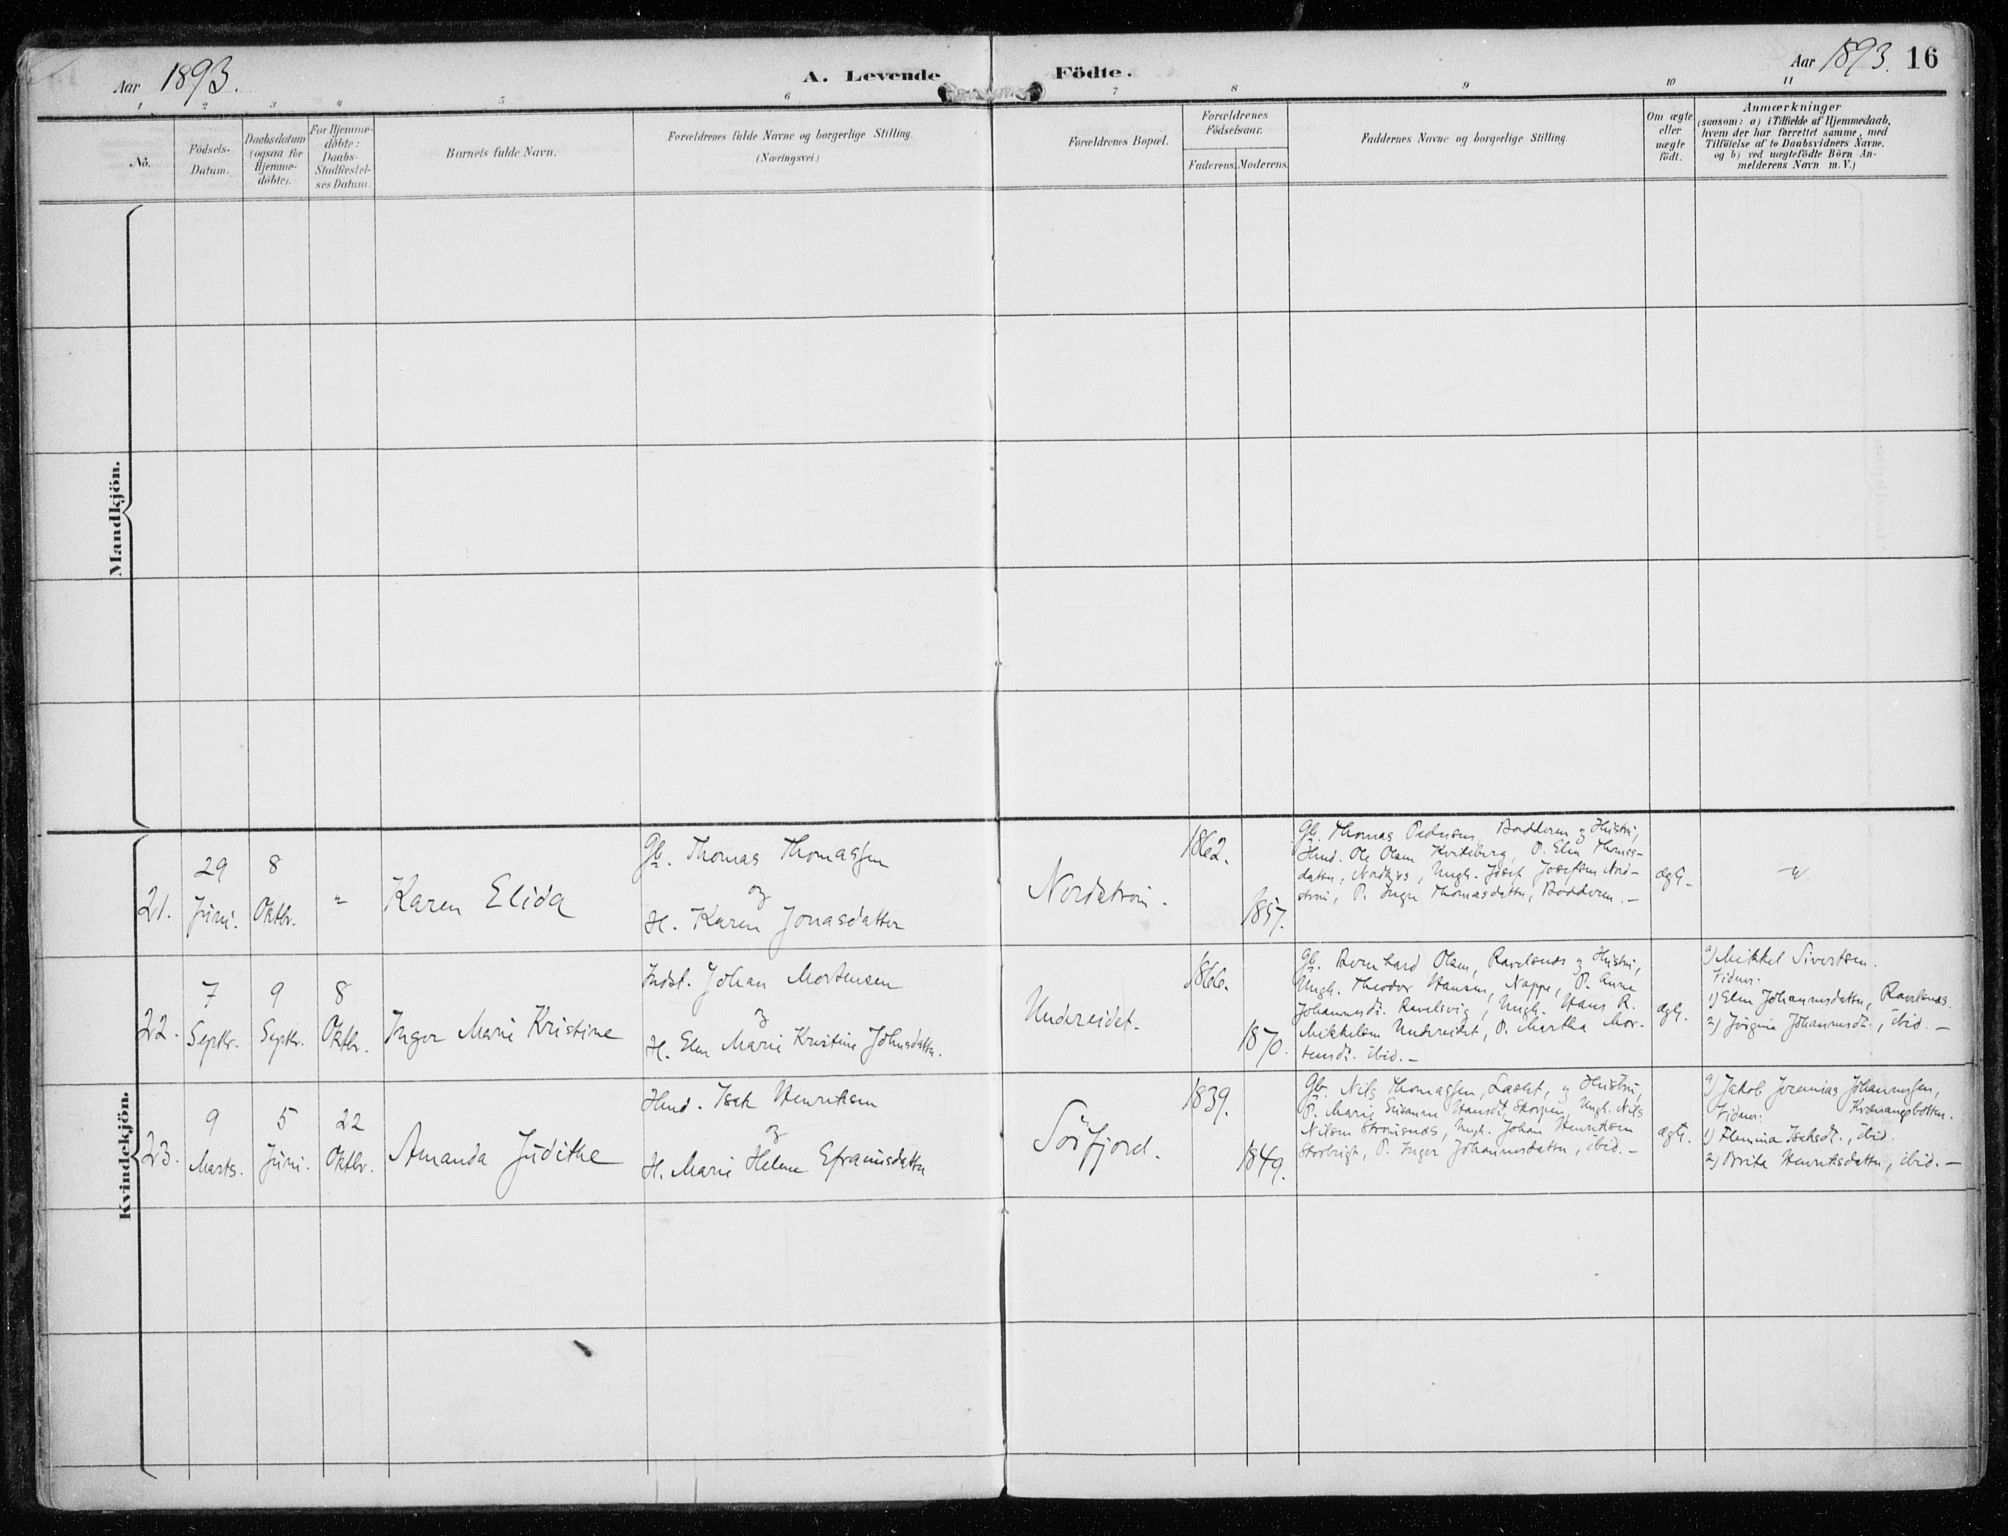 Aar 1893.
A. Levende Födte.
Aar 1893. 16
1 2 3 4 5 6 7 8 9 10 11
No.
Födsels-
Datum.
Daabsdatum
(ogsaa for
Hjemme-
döbte).
For Hjemme-
döbte:
Daabs-
Stadfæstel-
ses Datum
Barnets fulde Navn.
Forældrenes fulde Navne og borgerlige Stilling.
(Næringsvei.)
Forældrenes Bopæl.
Forældrenes
Födselsaar.
Faderens. Moderens.
Faddernes Navne og borgerlige Stilling
Om ægte
eller
uægte
födt.
Anmærkninger
(saasom: a) i Tilfælde af Hjemmedaab,
hvem der har forrettet samme, med
Tilföielse af to Daabsvidners Navne,
og b) ved uægtefödte Börn An-
melderens Navn m. V.)
Mandkjön.
Kvindekjön.
21.
29
Juni.
8
Oktbr.
"
Karen Elida
Gb. Thomas Thomassen
og
H. Karen Jonasdatter
Nordström.
1862.
1857.
Gb. Thomas Pedersen, Bodderen og Hustru,
Hmd. Ole Olsen Kvitberg, P. Elen Thomas-
datter, Ungk. Josef Josefsen Nord-
ström, P. Inger Thomasdatter, Bodderen. –
ægt.
"
22.
7
Septbr.
9
Septbr.
8
Oktbr.
Inger Marie Kristine
Indst. Johan Mortensen
og
H. Elen Marie Kristine Johnsdatter.
Undereidet.
1866.
1870.
Gb. Bernhard Olsen, Ravelsnæs og Hustru,
Ungk. Theodor Hansen, Nappe, P. Anne
Johannesdt. Ravelsvig, Ungk. Hans R.
Mikkelsen Undereidet, P. Martha Mor-
tensdt. ibid. –
ægt.
a) Mikkel Sivertsen.
Vidner:
1) Elen Johannesdatter, Ravelsnæs
2) Jörgine Johannesdt., ibid. –
23.
9
Marts.
5
Juni.
22
Oktbr.
Amanda Judithe
Hmd. Isak Henriksen
og
H. Marie Helene Efraimsdatter
Sörfjord.
1839.
1849.
Gb. Nils Thomassen, og Hustru,
P. Marie Susanne Hansdt, Skorpen, Ungk. Nils
Nilsen Strömsnæs, Ungk. Johan Henriksen
Storbugt, P. Inger Johannesdatter, ibid. –
ægt.
a) Jakob Jeremias Johannessen,
Kvænangsbotten.
Vidner:
1) Isaksdt., ibid.
2) Brita Henriksdatter, ibid. –